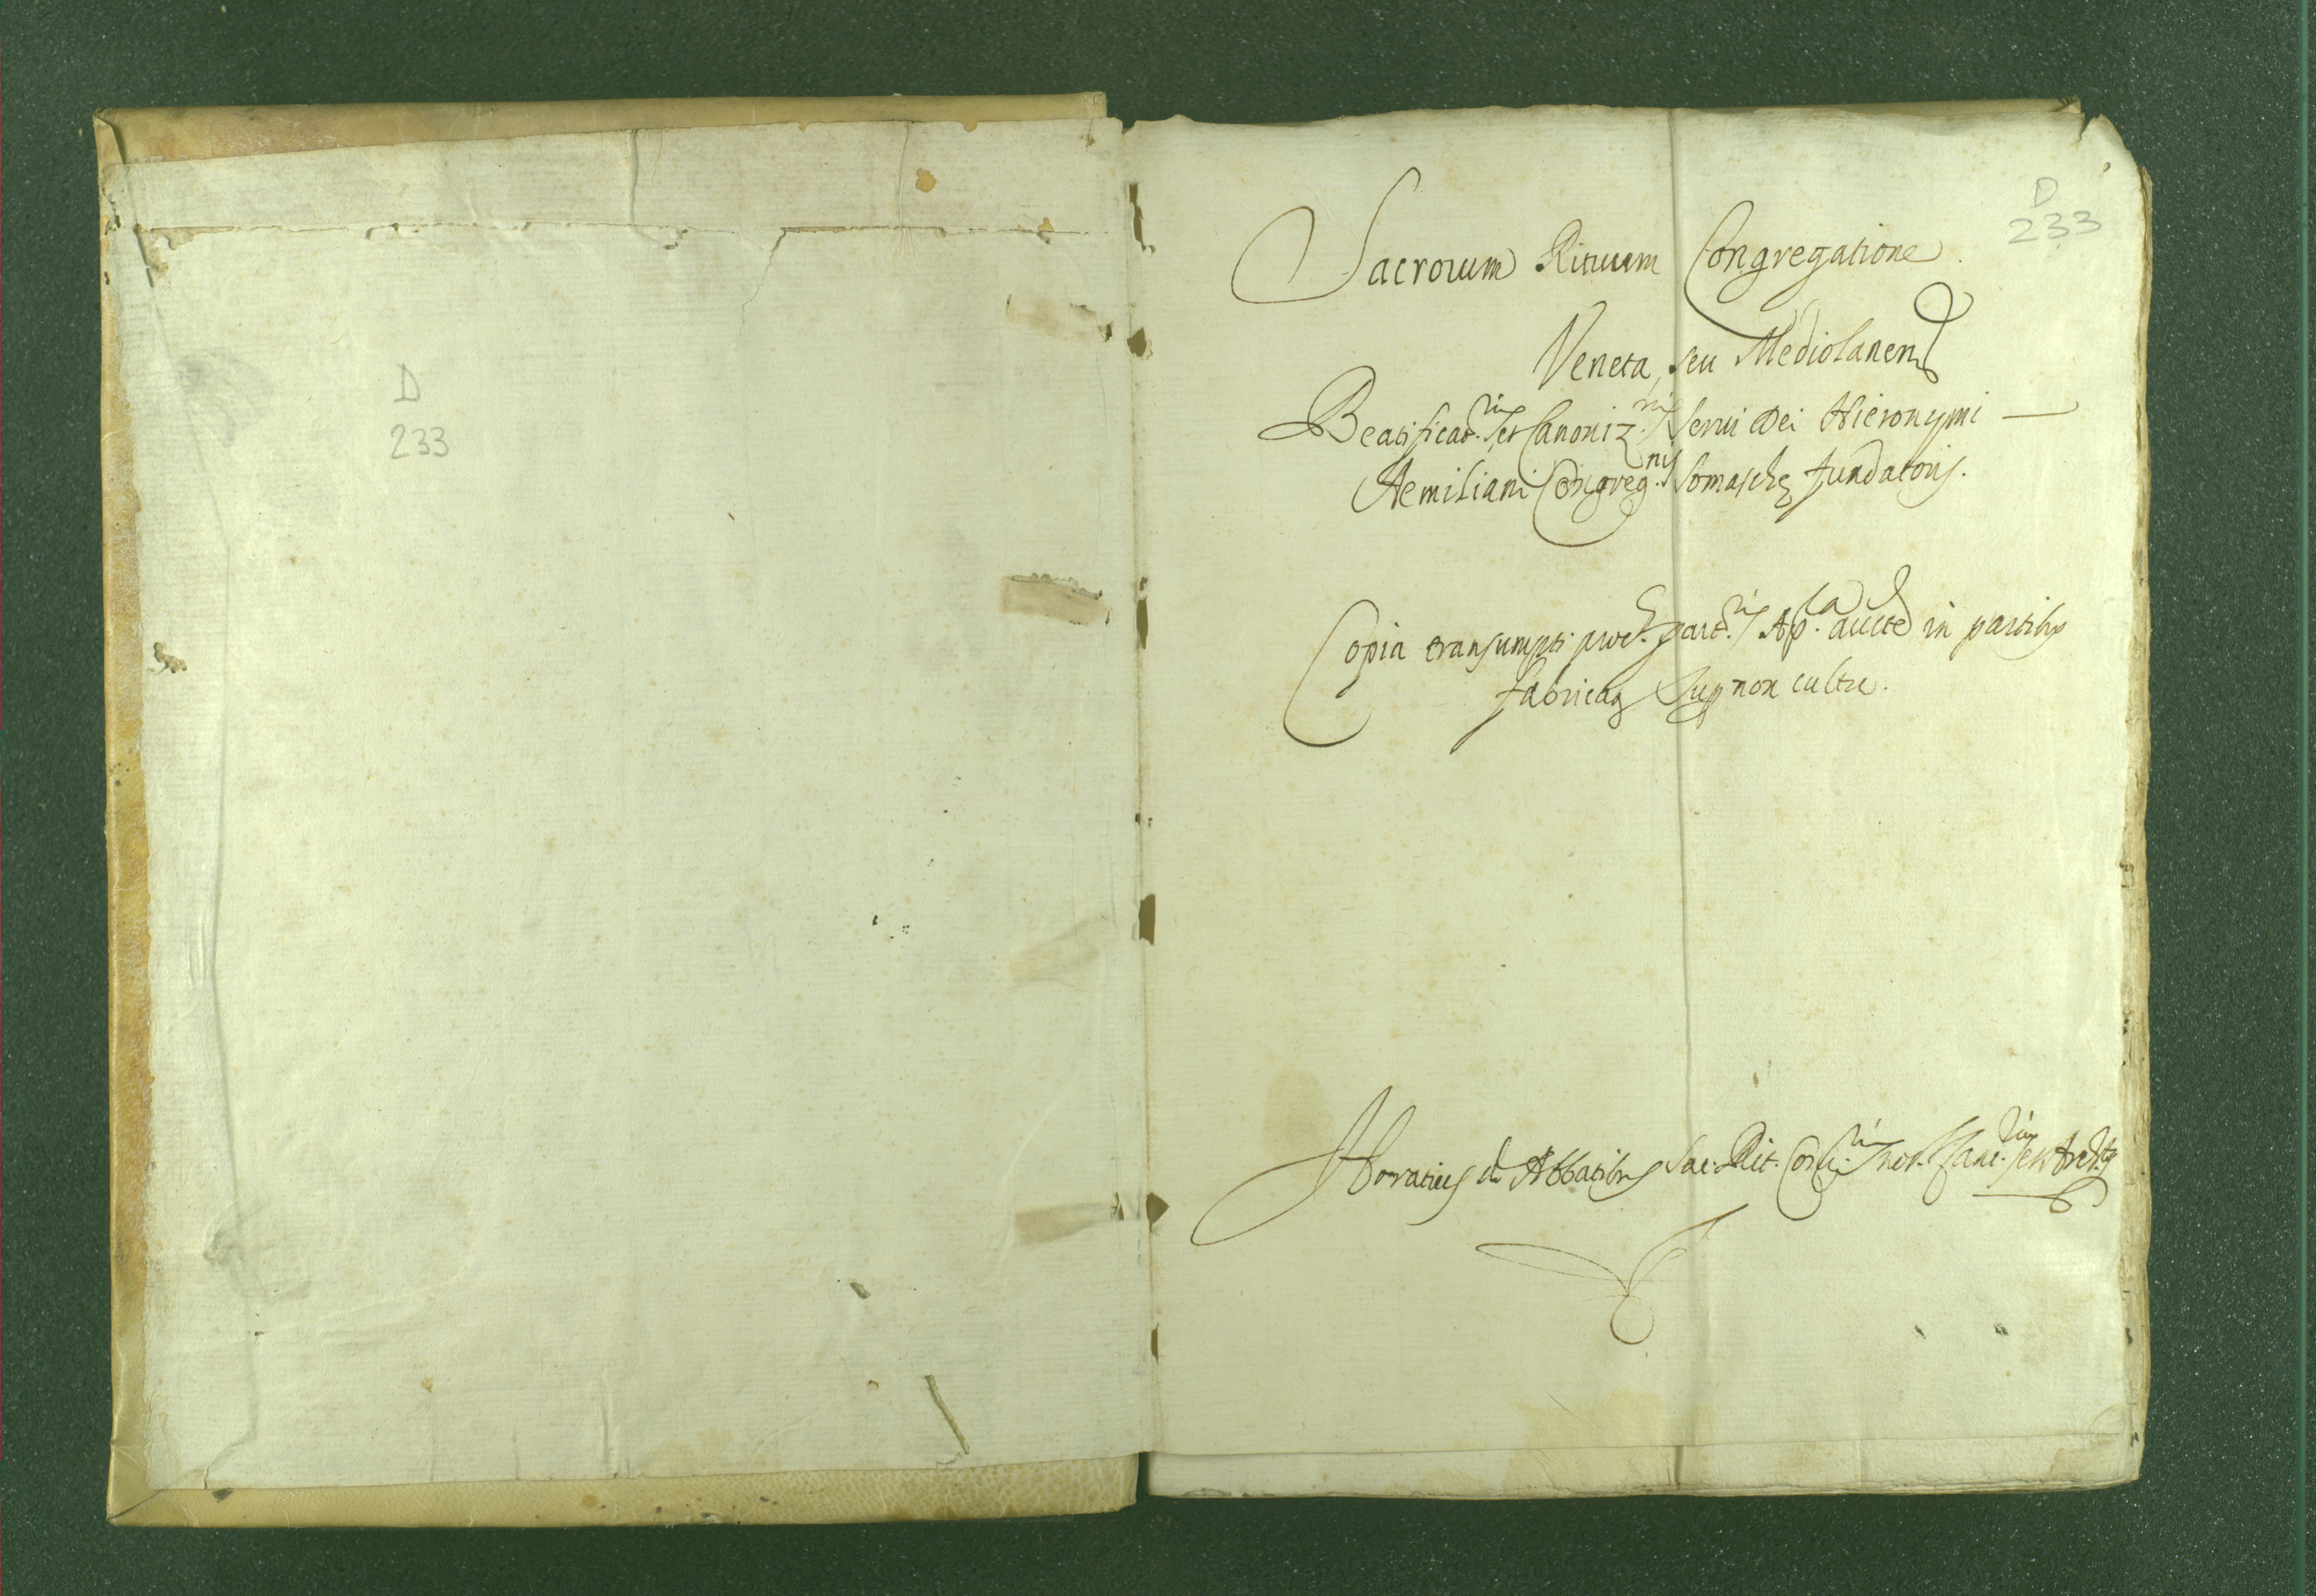 D
233
D
233
Sacrorum Rituum Congregatione
Veneta, seu Mediolanen
Beatificat.nis et Canoniz.nis Servi Dei Hieronymi
Aemiliani Congreg.nis Somaschę fundatoris.
Copia transumpti proc. part.ris Ap.ca aucte in partibus
fabricat Sup non cultu.
Horatius de Abbatibus Sac. Rit. Cong.nis not. Canc.